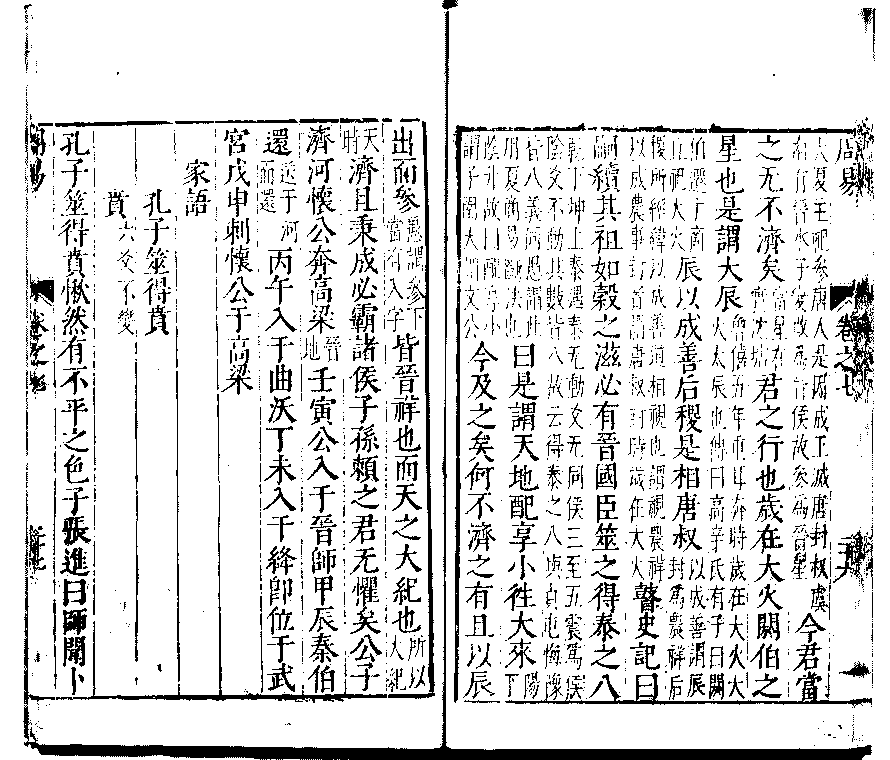 周易 卷之七
大夏主祀參唐人是因成王滅唐封叔虞
南有晉水子燮改爲晉侯故參爲晉星
今君當
之无不濟矣
當星在
實沈墟
君之行也歲在大火閼伯之
星也是謂大辰
魯僖五年重耳奔時歲在大火大
火大辰也傳曰高辛氏有子曰閼
伯遷于商
丘祀大火
辰以成善后稷是相唐叔
以成善謂辰
封爲農祥后
稷所經緯以成善道相視也謂視農祥
以成農事封者謂唐叔封時歲在大火
瞽史記曰
嗣續其祖如穀之滋必有晉國臣筮之得泰之八
乾下坤上泰遇泰无動爻无同侯三至五震爲侯
陰爻不動其數皆八故云得泰之八與貞屯悔豫
皆八義同愚謂此
用夏商易斷法也
曰是謂天地配享小徃大來
陽
下
陰升故曰配享小
謂子圉大謂文公
今及之矣何不濟之有且以辰
出而參
愚謂參下
當有入字
皆晉祥也而天之大紀也
所以
大紀
天
時
濟且秉成必霸諸侯子孫賴之君无懼矣公子
濟河懷公奔高梁
晉
地
壬寅公入于晉師甲辰秦伯
還
送于河
而還
丙午入于曲沃丁未入于絳卽位于武
宮戊申刺懷公于高梁
家語
孔子筮得賁
賁
六爻不變
孔子筮得賁愀然有不平之色子張進曰師聞卜
周易 卷之七